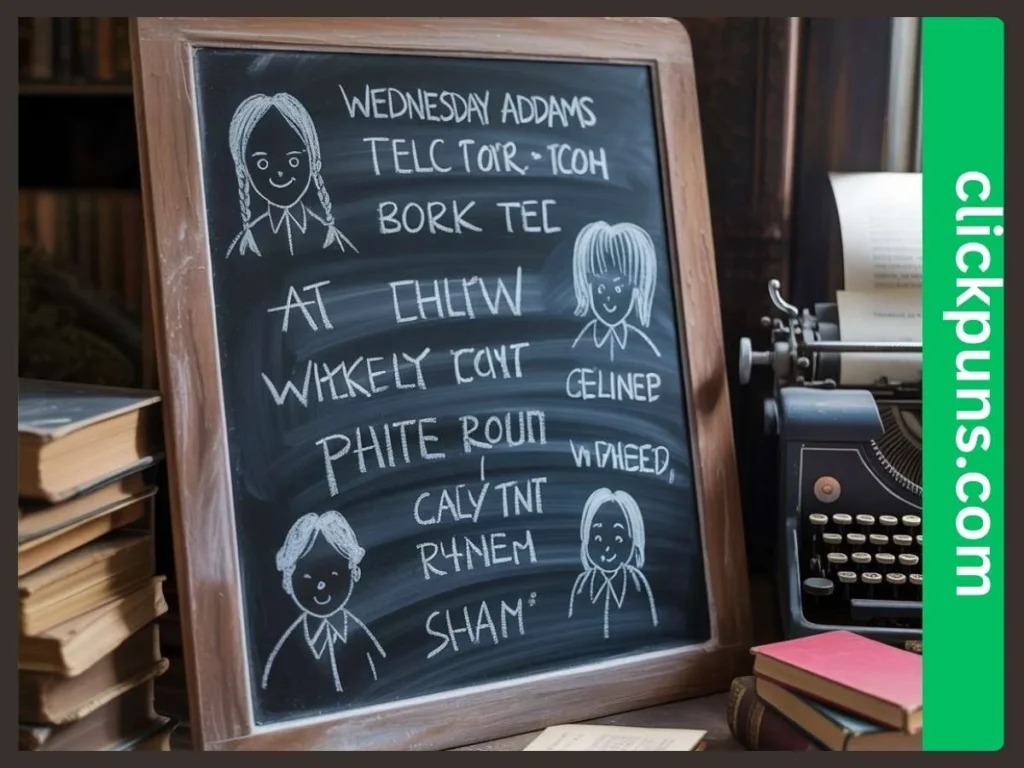 WEDNESDAY ADDAMS
TELC TOYR - TCOH
BORK TEC
AT CHLIW
WIKKELY COYT
CELINEP
PHITE ROUN
WPHEED,
CALY TNT
R4NEM
SHAM
clickpuns.com